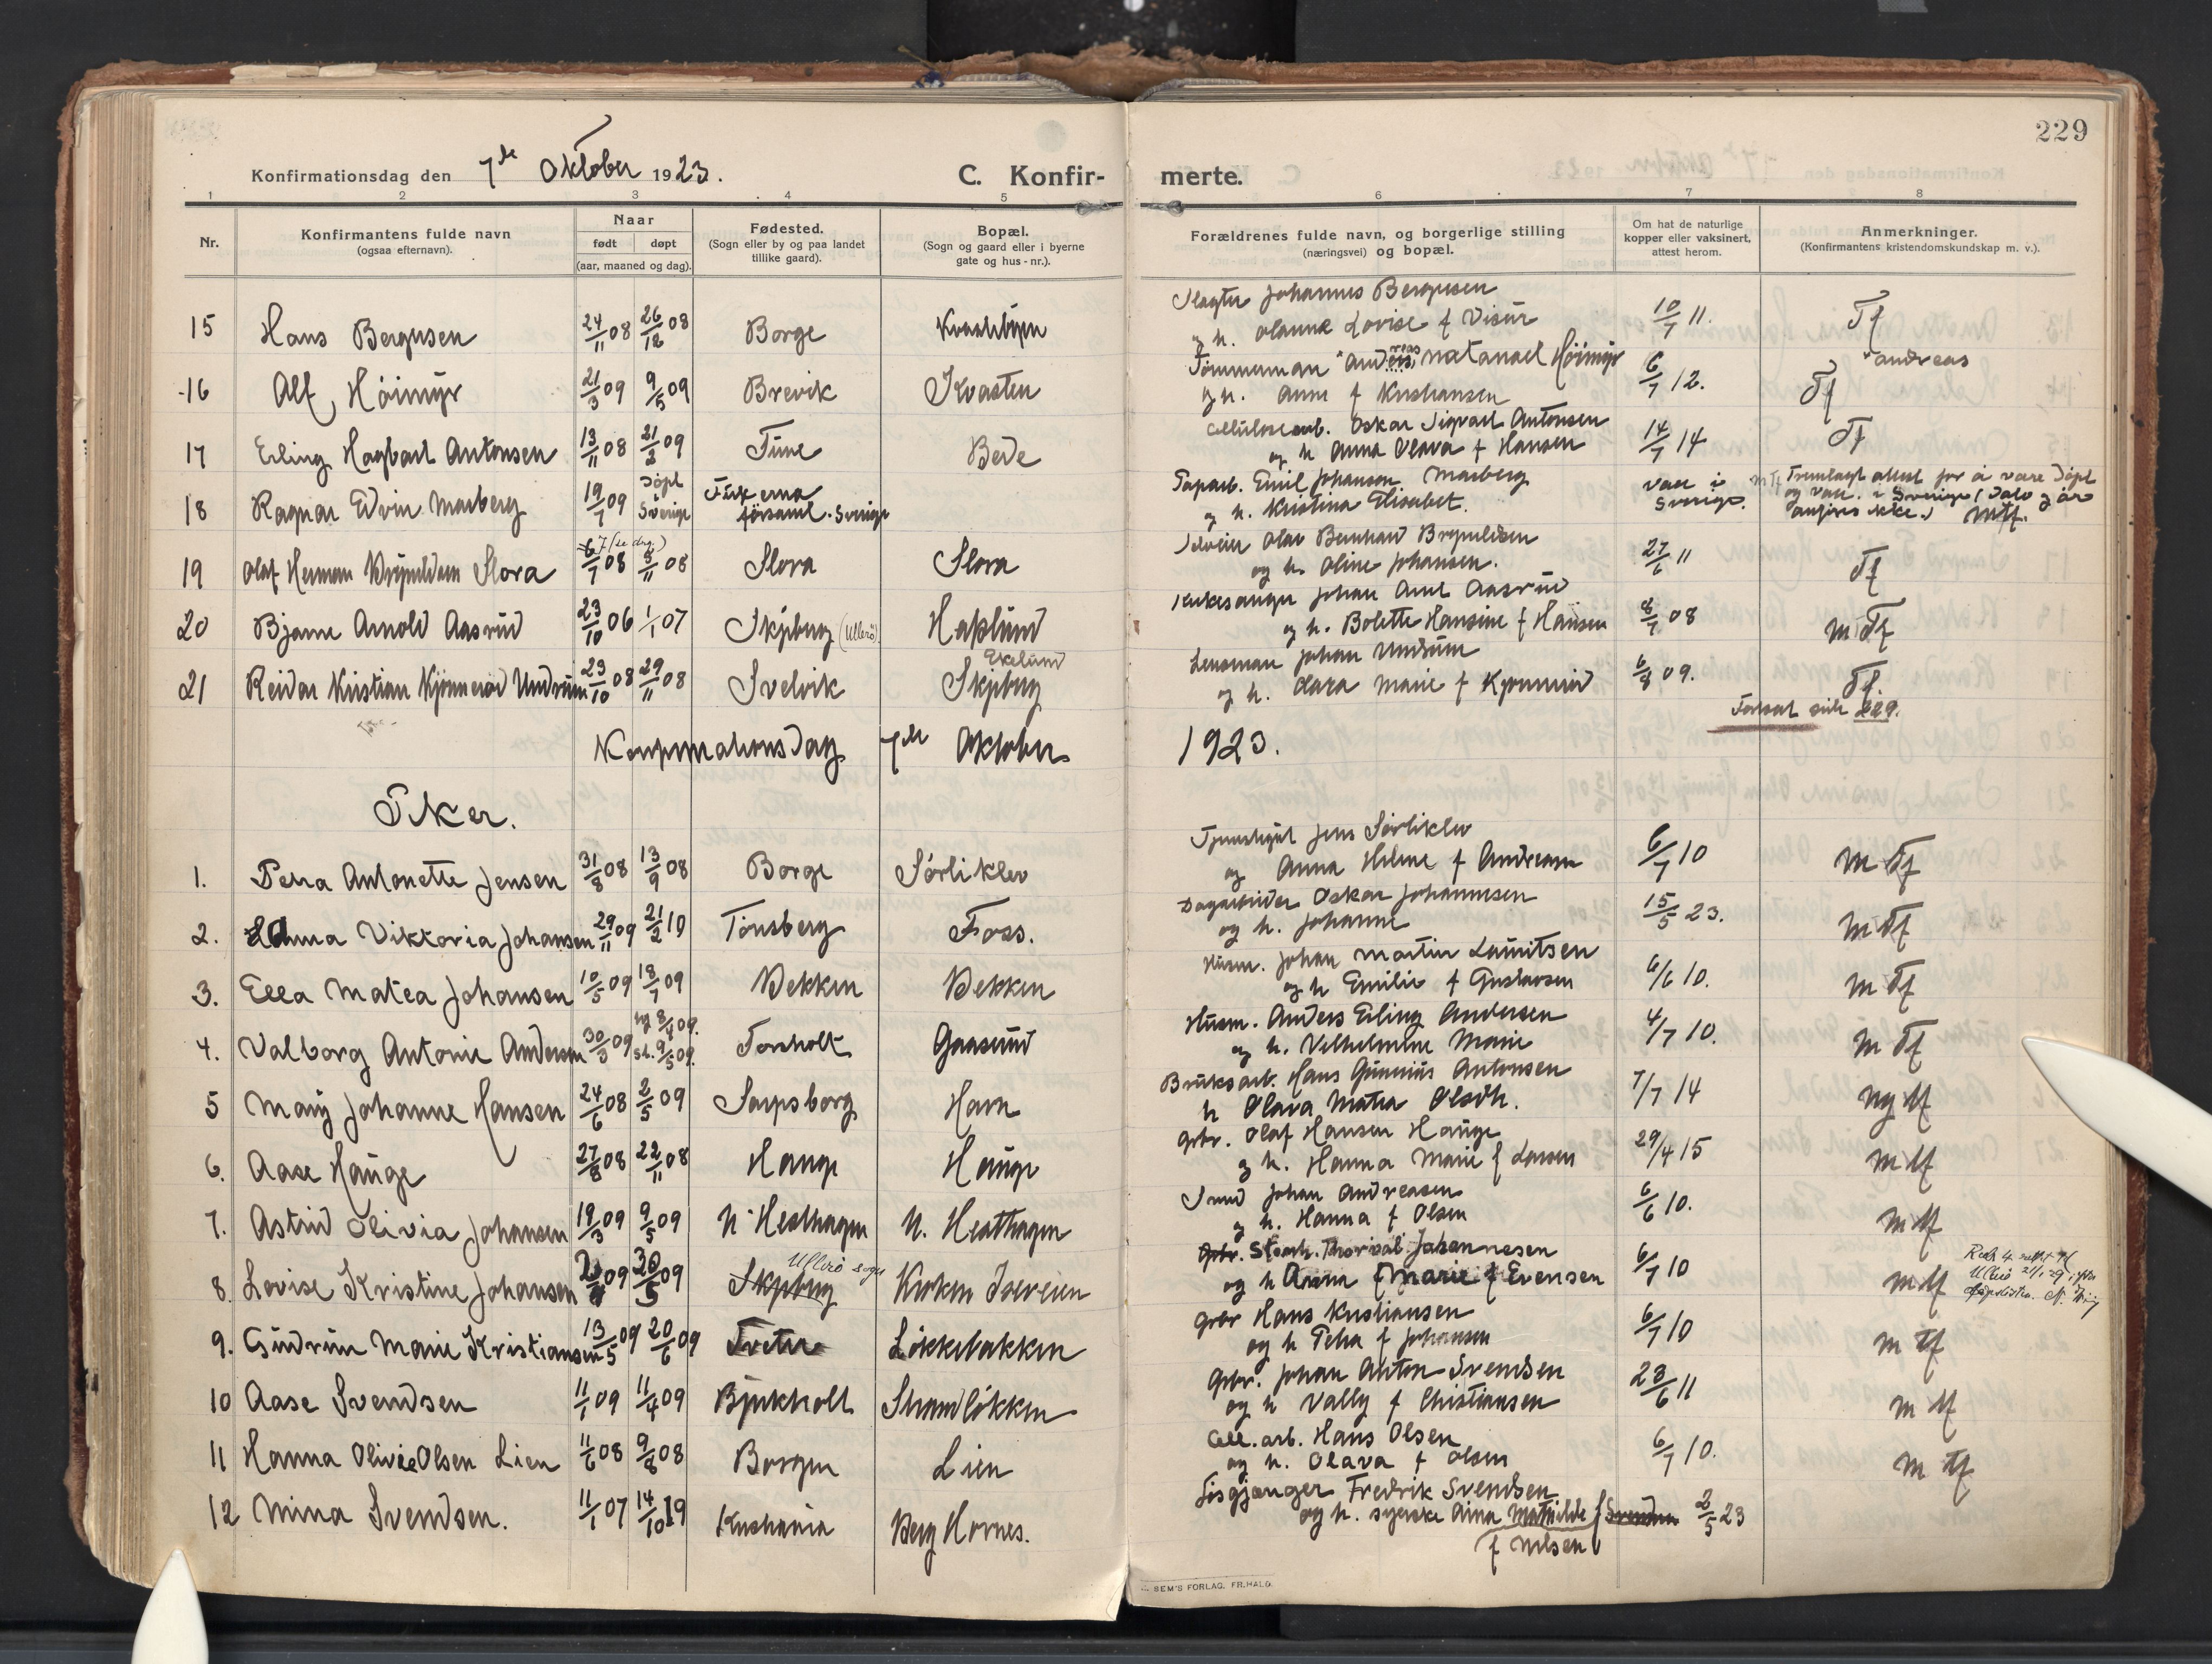 229
Konfirmationsdag den 7de Oktober 1923. C. Konfir- merte.
1 2 3 4 5 6 7 8
Nr. Konfirmantens fulde navn (ogsaa efternavn). Naar født døpt (aar, maaned og dag). Fødested. (Sogn eller by og paa landet tillike gaard). Bopæl. (Sogn og gaard eller i byerne gate og hus-nr.). Forældrenes fulde navn, og borgerlige stilling (næringsvei) og bopæl. Om hat de naturlige kopper eller vaksinert, attest herom. Anmerkninger. (Konfirmantens kristendomskundskap m. v.).
15 Hans Bergersen 24/11 08 26/12 08 Borge Johannes Bergersen
og h. Lovise f 10/7 11. Tf
16 Alf Höimyr 21/3 09 9/5 09 Brevik Kvasten Tömmerman *Andreas Natanael Höimyr *Andreas
og h. Anne f Kristiansen 6/7 12. Tf
17 Erling Hagbart Antonsen 13/11 08 21/2 09 Tune Bede Cellulosearb. Oskar Sigvart Antonsen
og h Anna Olava f Hansen 14/7 14 Tf
18 Ragnar Edvin Masberg 19/7 09 döpt Sverige församl. Sverige Paparb. Emil Johanson Masberg
og h. Kristina Elisabet. vacc i Sverige. Fremlagt attest for å være döpt
og vacc. i Sverige (Dato og år
angives ikke.) mtf.
19 Olaf Herman Brynildsen Slora 6/7 08 8/11 08 Slora Slora Selveier Olav Bernhard Brynildsen
og h. Oline Johansen. 27/6 11 Tf
20 Bjarne Arnold Aasrud 23/10 06 1/1 07 Skjeberg (Ullerö) Haslund Kirkesanger Johan Aasrud
og h. Bolette Hansine f Hansen 8/7 08 m Tf
21 Reidar Kristian Kjönneröd Undrum 23/10 08 29/11 08 Svelvik Eklund
Skjeberg Lensman Johan Undrum
og h. Lara Marie f Kjönneröd 6/8 09. Tf.
Forsat side 229.
Konfirmationsdag 7de Oktober 1923.
Piker.
1. Petra Antonette Jensen 31/8 08 13/9 08 Borge Sörliklev Jens Sörliklev
og Anna Helene f Andreasen 6/7 10 m Tf
2. Anna Viktoria Johansen 29/11 09 21/2 10 Tönsberg Foss. Dagarbeider Oskar Johannesen
og h. Johanne 15/5 23. m Tf
3. Ella Matea Johansen 10/5 09 18/7 09 Bekken Bekken Husm. Johan Martin Lauritsen
og h Emilie f Gustavsen 6/6 10. m Tf
4. Valborg Antonie Andersen 30/3 09 8/4 09. 9/5 09. Torsholt Gaasund Husm. Anders Erling Andersen
og h. Vilhelmine Marie 4/7 10. m Tf
5 Mary Johanne Hansen 24/6 08 2/5 09 Sarpsborg Havn Bruksarb. Hans Gunnius Antonsen
h Olava Matea Olsdt. 7/7 14 ng tf
6. Aase Hauge 27/8 08 22/11 08 Hauge Hauge Grbr. Olaf Hansen Hauge
og h. Hanna Marie f Larsen 29/4 15 m tf
7. Astrid Olivia Johansen 19/3 09 9/5 09 N. Hesthagen N. Hesthagen Johan Andreasen
og h. Hanna f Olsen 6/6 10. m tf
8. Lovise Kristine Johansen 09 30/5 09 Ullerö sogn
Skjeberg Kirken Iseveien Grbr. Stenh. Thorvald Johannesen
og h Anna Marie f Evensen 6/7 10 m tf
9. Gudrun Marie Kristiansen 13/5 09 20/6 09 Tveter Lökkebakken Grbr Hans Kristiansen
og h Petra f Johansen 6/7 10 m tf
10 Aase Svendsen 11/1 09 11/4 09 Bjerkholt Strandlökken Grbr. Johan Anton Svendsen
og h Vally f Christiansen 23/6 11 m tf
11 Hanna Olivie Olsen Lien 11/6 08 9/8 08 Borgen Lien Cell. arb. Hans Olsen
og h. Olava f Olsen 6/7 10. m tf
12 Mina Svendsen. 11/1 07 14/10 19 Kristiania Berg Hornes. Fredrik Svendsen
og h. syerske Aina Mathilde f Svendsen 2/5 23
f Nilsen
SEM'S FORLAG. FR.HALD.